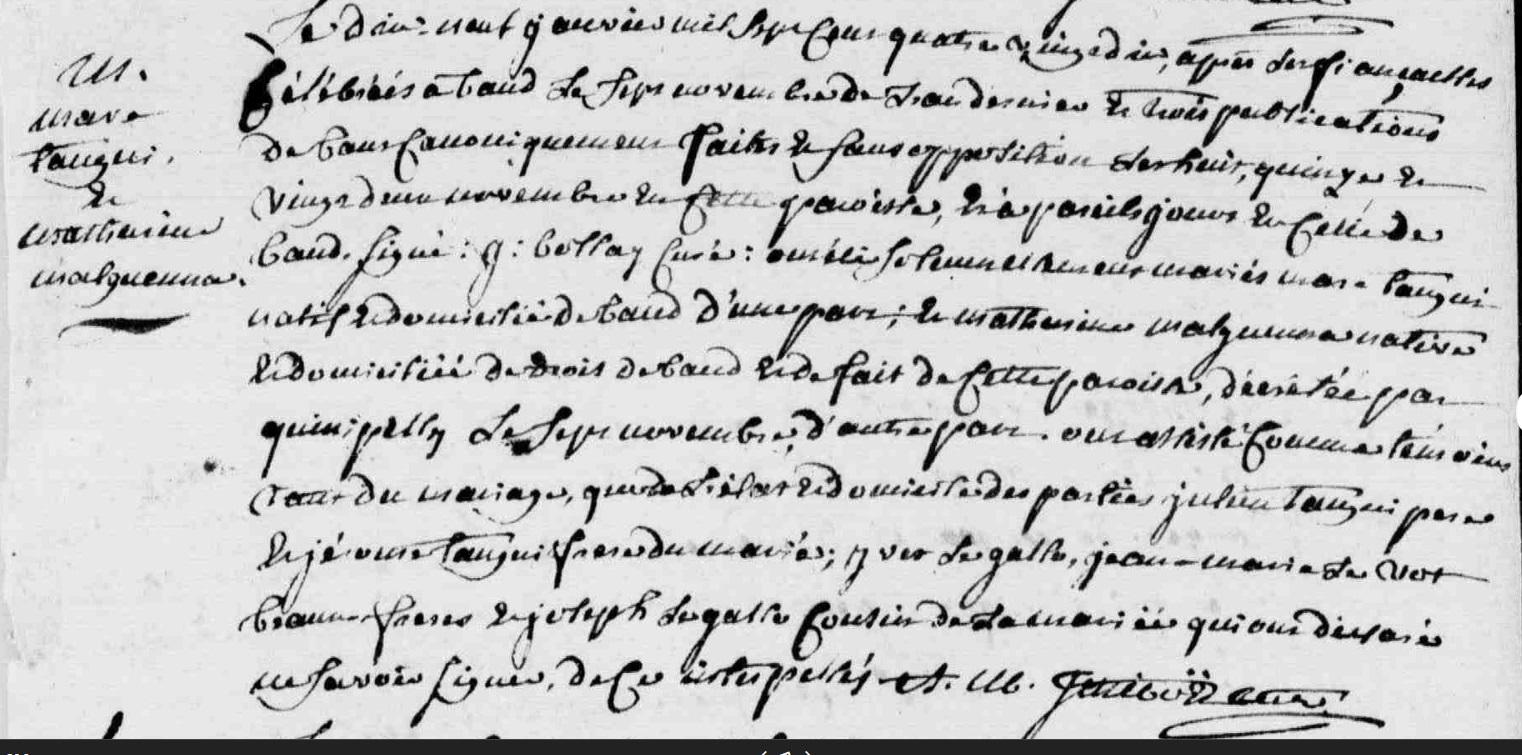 M.
marc
tangui.
et
mathurine
malguenna.
Le dix-neuf janvier mil sept cent quatre vingt dix, après les fiançailles
Célébrées a baud le sept novembre de l'an dernier et trois publications
de bans Canoniquement faites et sans opposition les huit, quinze et
vingt deux novembre en Cette paroisse, et à pareils jours en Celle de
baud. signé: g: bellay Curé: ont été solennellement mariés marc tangui
natif et domicilié de baud d'une part; et mathurine malguenna native
et domiciliée de droit de baud et de fait de Cette paroisse, décrétée par
quinipilly le sept novembre, d'autre part. ont assisté Comme témoins
tant du mariage, que de l'état et domicile des parties julien tangui pere
et jérome tangui frere du marié; yves le gallo, jean-marie le vot
beaux-freres et joseph le gallo Cousin de la mariée qui ont déclaré
ne savoir signer, de Ce interpellés